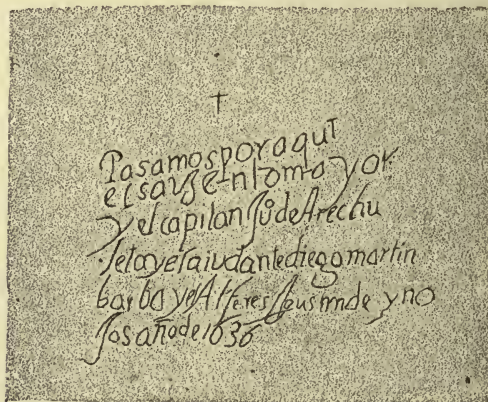 †
Pasamos por aqui
el sargentomayor
y el capitan Ju de Arechu
leta yelaiudantediegomartin
barba yelAlferes Agusmde yno
Josañode1636